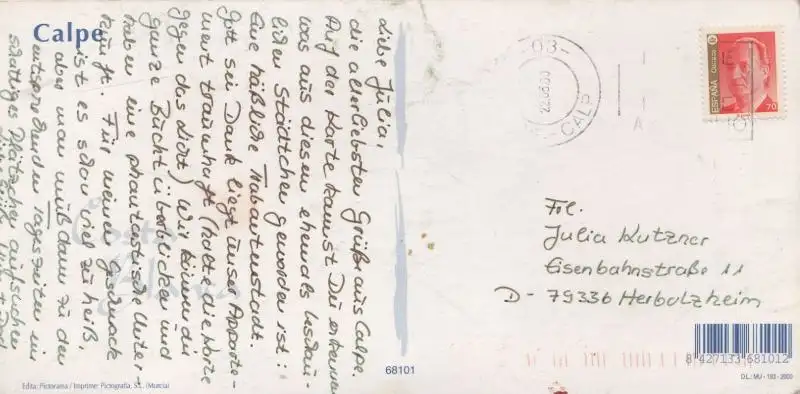 Calpe
Liebe Julia,
die allerliebsten Grüße aus Calpe.
Auf der Karte kannst Du erkennen
was aus diesem ehemals
lichen Städtchen geworden ist:
eine häßliche Trabantenstadt.
Gott sei Dank liegt unser Apparte-
ment traumhaft (halte die Karte
gegen das Licht) Wir können die
ganze Bucht überblicken und
haben eine phantastische Unter-
kunft. Für meinen Geschmack
ist es schon viel zu heiß,
aber man muß dann zu den
entsprechenden Tageszeiten ein
schattiges Plätzchen aufsuchen
Costa
Blanca
Edita: Pictorama / Imprime: Pictografía, S.L. (Murcia)
68101
03-
22.06.00
CALP
ESPAÑA
70
Frl.
Julia Kutzner
Eisenbahnstraße 11
D- 79336 Herbolzheim
8 427133 681012
D.L.: MU - 193 - 2000